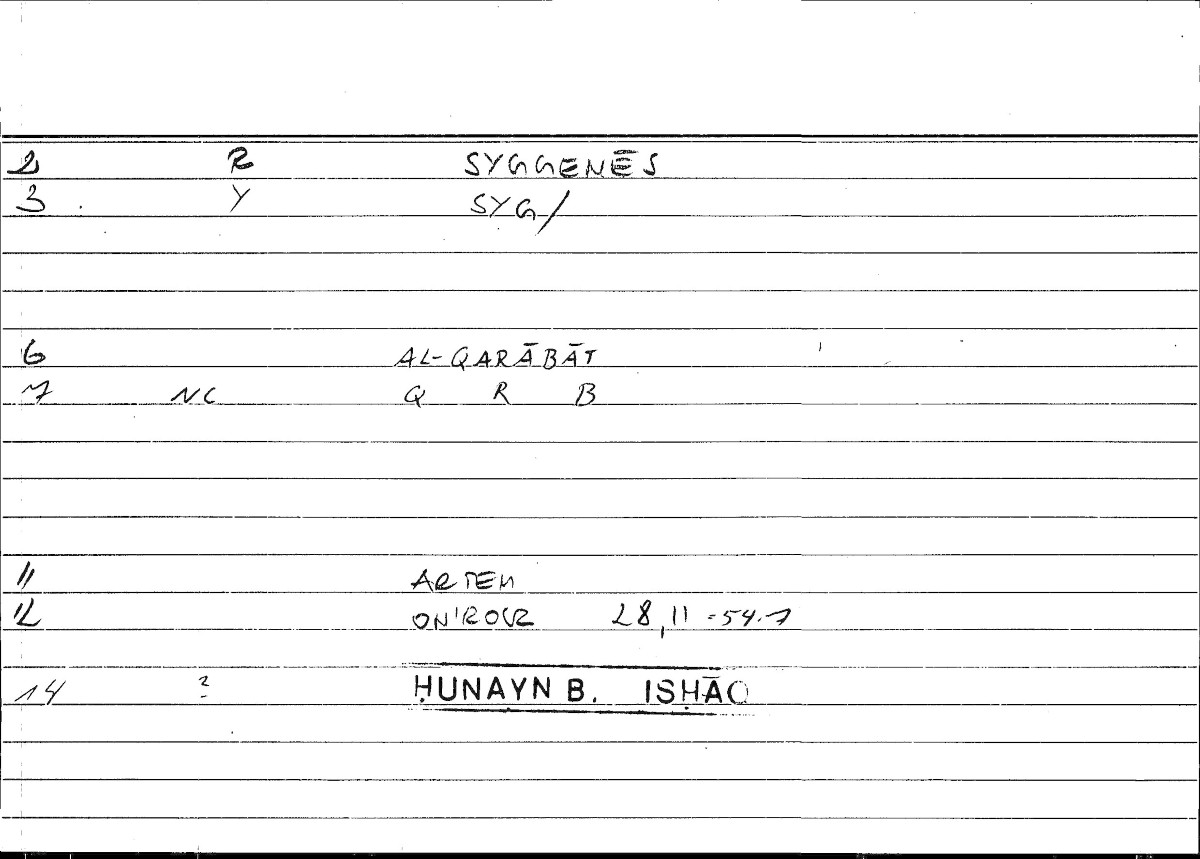 2 R SYGGENĒS
3 Y SYG/
6 AL-QARĀBĀT
7 NC Q R B
11 ARTEM
12 ONIROCR 28,11 = 54.7
14 ? ḤUNAYN B. ISḤĀQ